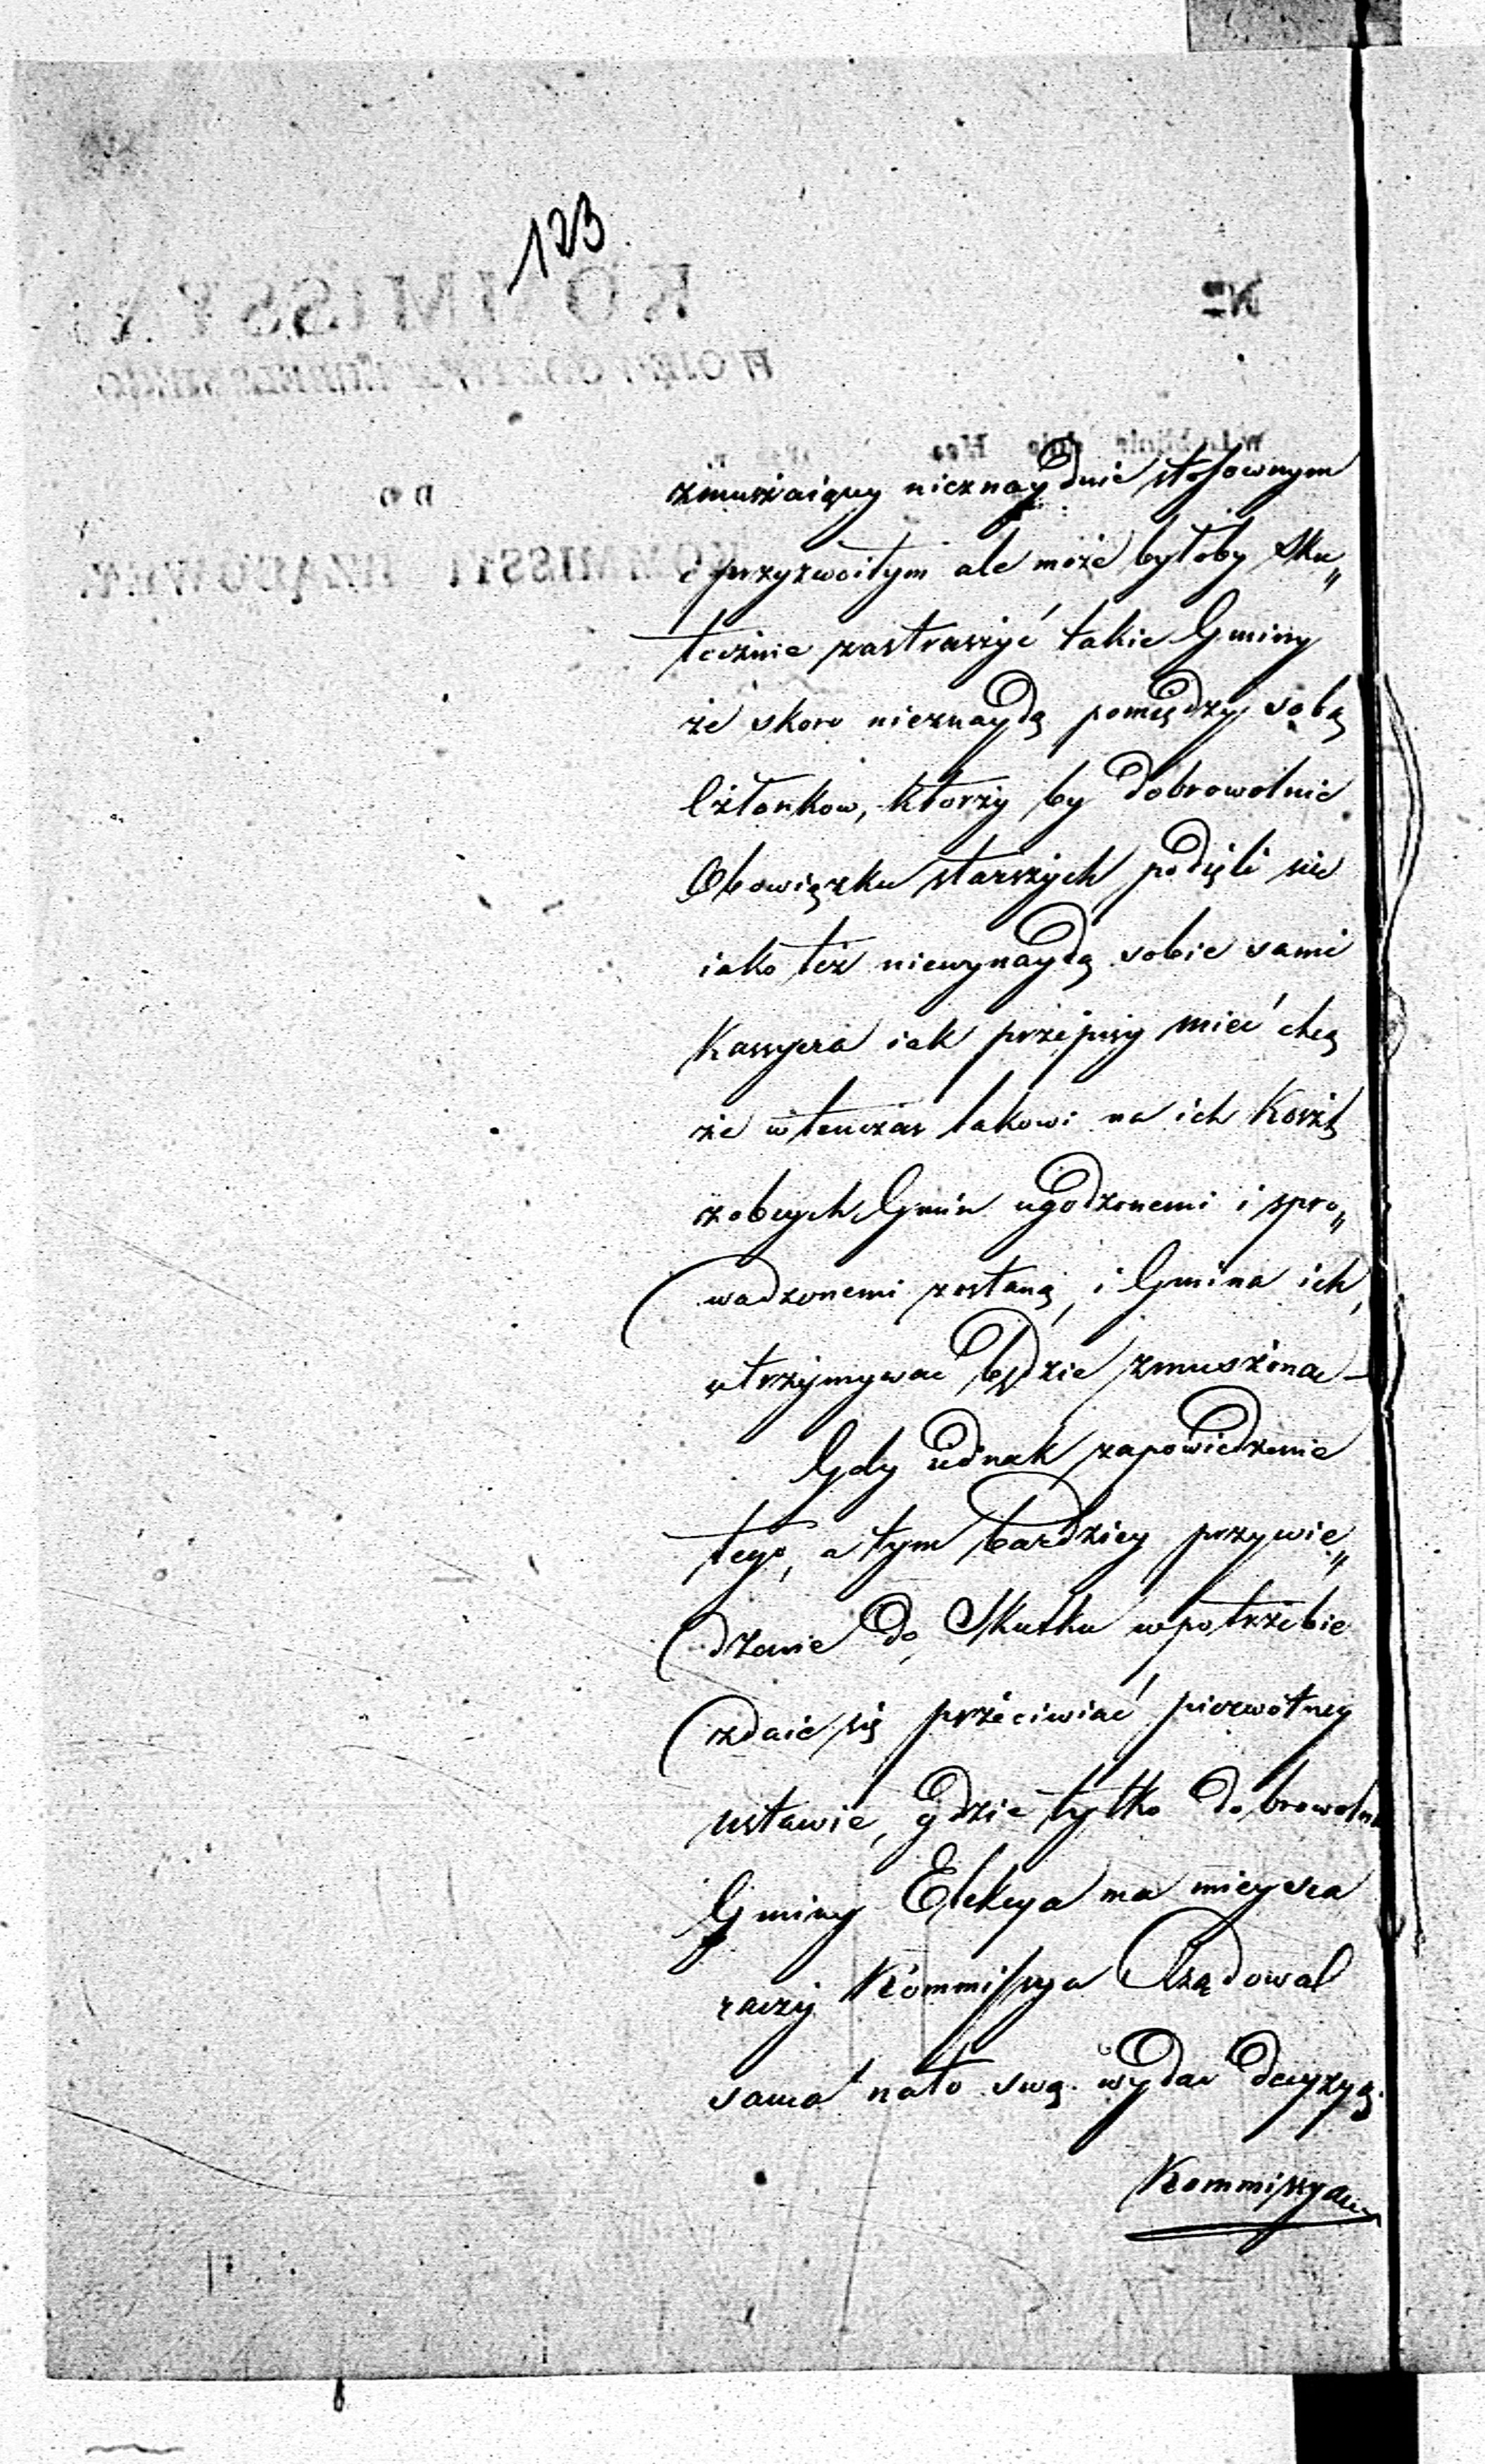 123
zmuszaiący nieznaydnie stosownym
i przyzwoitym ale może byłoby sku„
tecznie zastraszyć takie Gminy
że skoro nieznaydą pomiędzy sobą
Członkow, ktorzy by dobrowolnie
Obowiązku starszych podięli sie
iako też niewynaydą sobie sami
Kassyera iak przepisy mieć chcą
że wtenczas takowi na ich Koszt
z obcych Gmin ugodzonemi i spro„
wadzonemi zostaną, i Gmina ich,
utrzymywac będzie zmuszona –
Gdy iednak zapowiedzenie
tego, a tym bardziey przywie„
dzenie do Skutku wpotrzebie
zdaie się przeciwiać pierwotney
ustawie, gdzie tylko dobrowolna
Gminy Elekcya ma mieysca
raczy Kommissya Rządowa
sama nato swą wydać decyzyą.